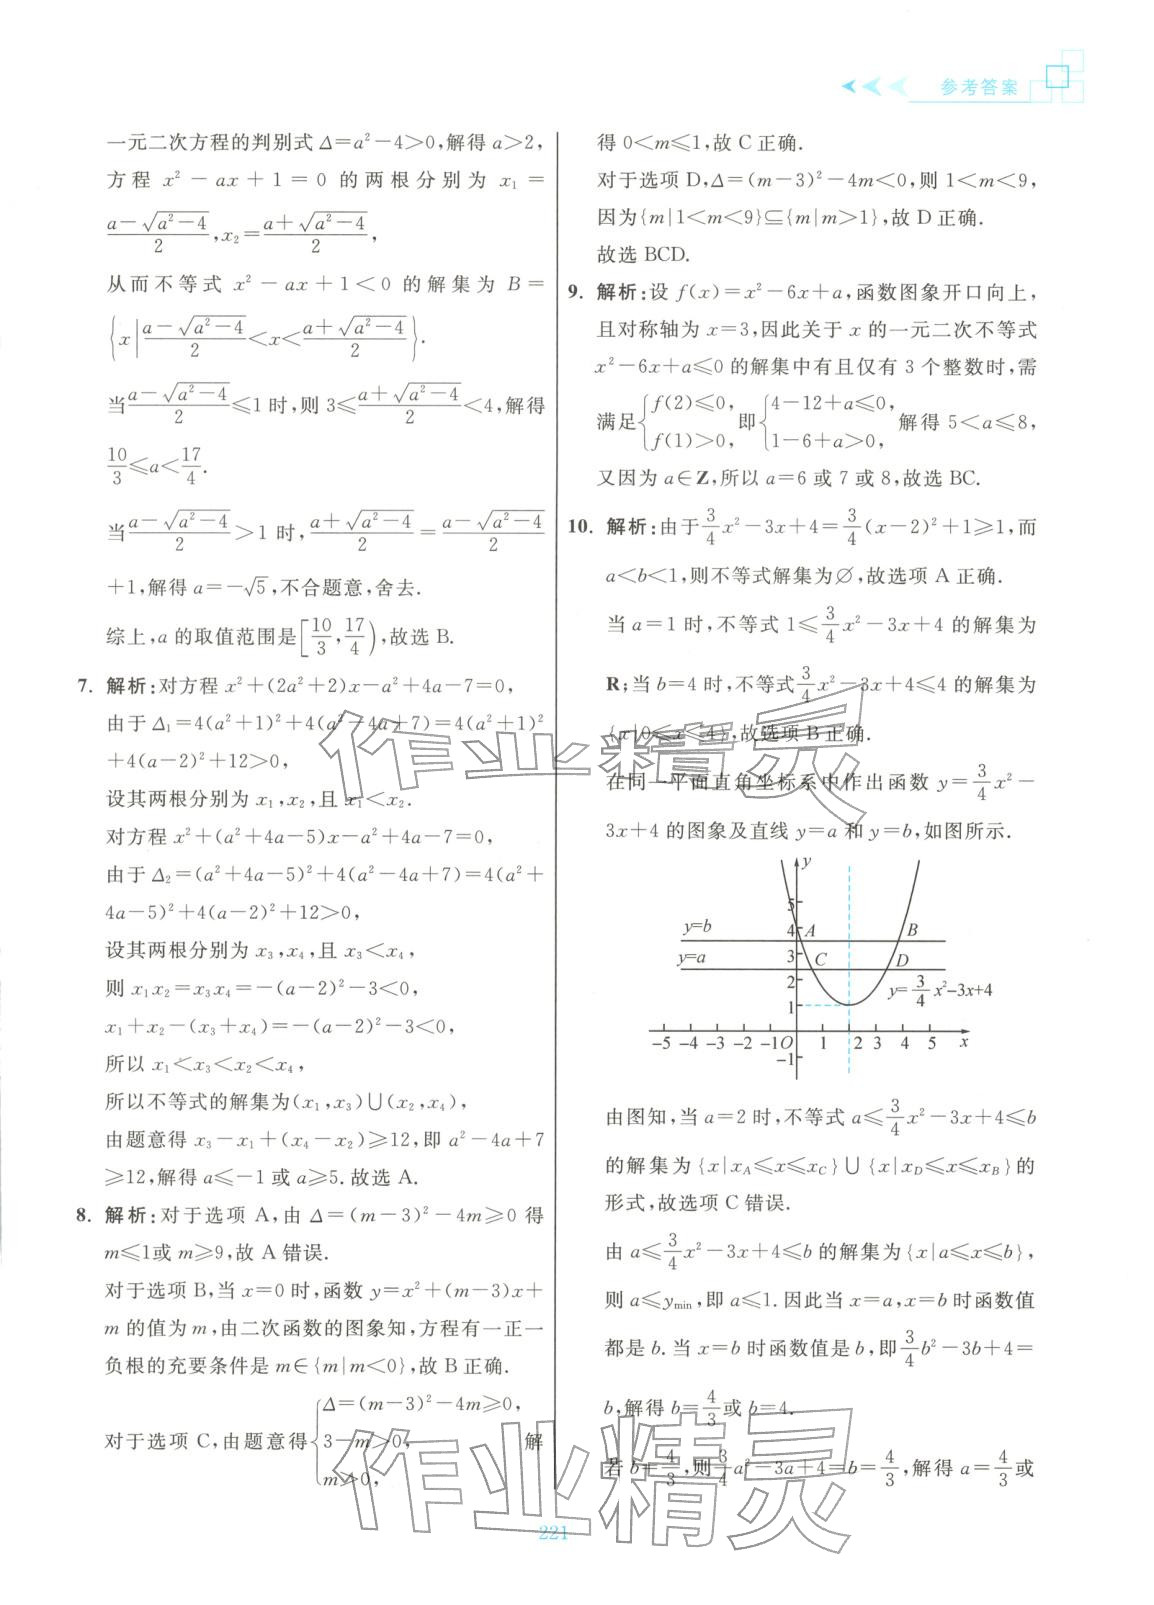 参考答案
一元二次方程的判别式 Δ=a²-4>0,解得 a>2,
方程 x²-ax+1=0 的两根分别为 x₁=
(a-√(a²-4))/2, x₂=(a+√(a²-4))/2,
从而不等式 x²-ax+1<0 的解集为 B=
{x|(a-√(a²-4))/2<x<(a+√(a²-4))/2}.
当(a-√(a²-4))/2≤1 时,则 3≤(a+√(a²-4))/2<4,解得
10/3≤a<17/4.
当(a-√(a²-4))/2>1 时,(a+√(a²-4))/2=(a-√(a²-4))/2
+1,解得 a=-√5,不合题意,舍去.
综上,a 的取值范围是[10/3,17/4),故选 B.
7. 解析:对方程 x²+(2a²+2)x-a²+4a-7=0,
由于 Δ₁=4(a²+1)²+4(a²-4a+7)=4(a²+1)²
+4(a-2)²+12>0,
设其两根分别为 x₁,x₂,且 x₁<x₂.
对方程 x²+(a²+4a-5)x-a²+4a-7=0,
由于 Δ₂=(a²+4a-5)²+4(a²-4a+7)=4(a²+
4a-5)²+4(a-2)²+12>0,
设其两根分别为 x₃,x₄,且 x₃<x₄,
则 x₁x₂=x₃x₄=-(a-2)²-3<0,
x₁+x₂-(x₃+x₄)=-(a-2)²-3<0,
所以 x₁<x₃<x₂<x₄,
所以不等式的解集为(x₁,x₃)∪(x₂,x₄),
由题意得 x₃-x₁+(x₄-x₂)≥12,即 a²-4a+7
≥12,解得 a≤-1 或 a≥5.故选 A.
8. 解析:对于选项 A,由 Δ=(m-3)²-4m≥0 得
m≤1或 m≥9,故 A 错误.
对于选项 B,当 x=0 时,函数 y=x²+(m-3)x+
m 的值为 m,由二次函数的图象知,方程有一正一
负根的充要条件是 m∈{m|m<0},故 B 正确.
对于选项 C,由题意得{Δ=(m-3)²-4m≥0, 3-m>0, m>0, 解
得 0<m≤1,故 C 正确.
对于选项 D,Δ=(m-3)²-4m<0,则 1<m<9,
因为{m|1<m<9}⊆{m|m>1},故 D 正确.
故选 BCD.
9. 解析:设 f(x)=x²-6x+a,函数图象开口向上,
且对称轴为 x=3,因此关于 x 的一元二次不等式
x²-6x+a≤0 的解集中有且仅有 3 个整数时,需
满足{f(2)≤0, f(1)>0, 即{4-12+a≤0, 1-6+a>0, 解得 5<a≤8,
又因为 a∈Z,所以 a=6 或 7 或 8,故选 BC.
10. 解析:由于3/4x²-3x+4=3/4(x-2)²+1≥1,而
a<b<1,则不等式解集为∅,故选项 A 正确.
当 a=1 时,不等式 1≤3/4x²-3x+4 的解集为
R;当 b=4 时,不等式3/4x²-3x+4≤4 的解集为
{x|0≤x≤4},故选项 B 正确.
在同一平面直角坐标系中作出函数 y=3/4x²-
3x+4 的图象及直线 y=a 和 y=b,如图所示.
y
5
y=b 4 A B
y=a 3 C D
2
y=3/4x²-3x+4
1
-5 -4 -3 -2 -1 O 1 2 3 4 5 x
-1
由图知,当 a=2 时,不等式 a≤3/4x²-3x+4≤b
的解集为{x|x_A≤x≤x_C}∪{x|x_D≤x≤x_B}的
形式,故选项 C 错误.
由 a≤3/4x²-3x+4≤b 的解集为{x|a≤x≤b},
则 a≤y_min,即 a≤1.因此当 x=a,x=b 时函数值
都是 b.当 x=b 时函数值是 b,即3/4b²-3b+4=
b,解得 b=4/3或 b=4.
若 b=4/3,则3/4a²-3a+4=b=4/3,解得 a=4/3或
221
作业精灵
作业精灵